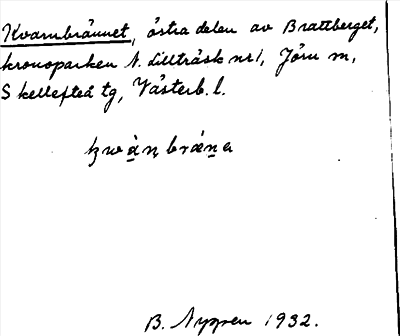 Kvarnbrännet, östra delen av Brattberget,
kronoparken N. Lillträsk nr 1, Jörn sn,
Skellefteå tg, Västerb. l.
B. Nyppen 1932.